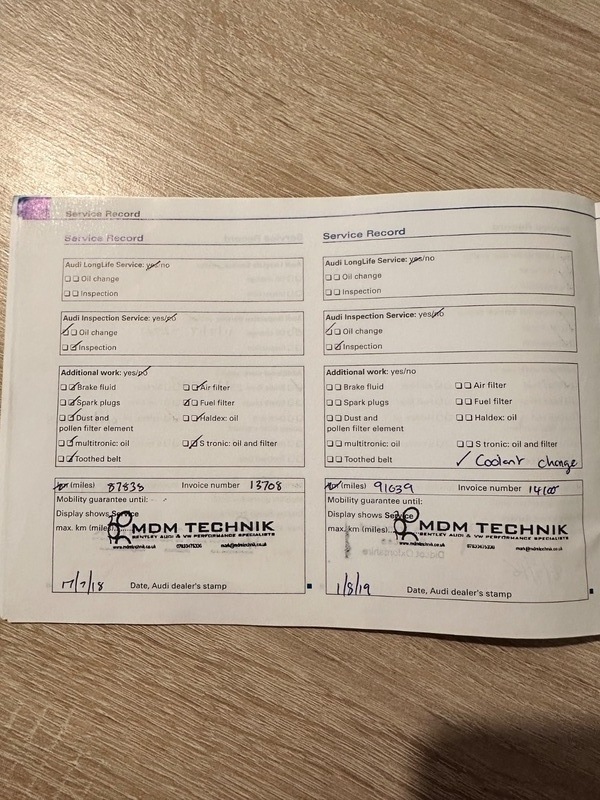 Service Record
Service Record
Audi LongLife Service: yes/no
Oil change
Inspection
Audi Inspection Service: yes/no
Oil change
Inspection
Additional work: yes/no
Brake fluid
Air filter
Spark plugs
Fuel filter
Dust and
pollen filter element
Haldex: oil
multitronic: oil
S tronic: oil and filter
Toothed belt
km (miles) 87835 Invoice number 13708
Mobility guarantee until:
Display shows Service
max. km (miles)
MDM TECHNIK
BENTLEY AUDI & VW PERFORMANCE SPECIALISTS
www.mdmtechnik.co.uk
17/7/18
Date, Audi dealer's stamp
Service Record
Audi LongLife Service: yes/no
Oil change
Inspection
Audi Inspection Service: yes/no
Oil change
Inspection
Additional work: yes/no
Brake fluid
Air filter
Spark plugs
Fuel filter
Dust and
pollen filter element
Haldex: oil
multitronic: oil
S tronic: oil and filter
Toothed belt
✓ Coolant change
km (miles) 91639 Invoice number
Mobility guarantee until:
Display shows Service
max. km (miles)
MDM TECHNIK
BENTLEY AUDI & VW PERFORMANCE SPECIALISTS
www.mdmtechnik.co.uk
1/8/19
Date, Audi dealer's stamp